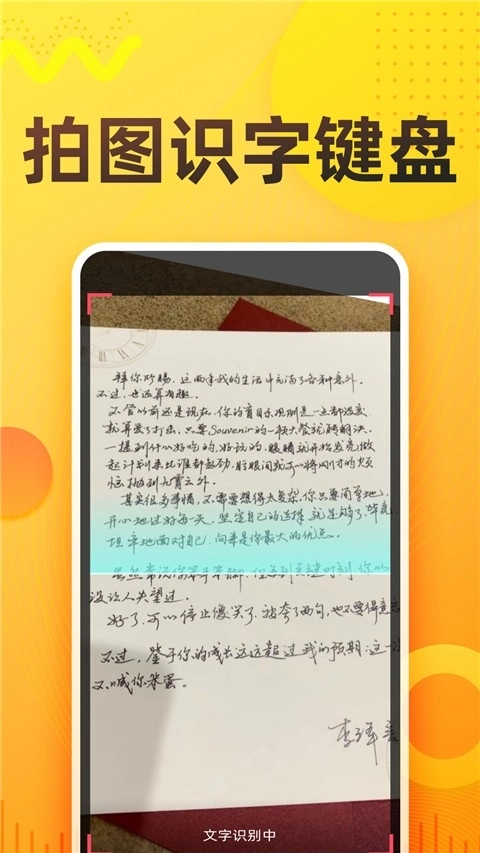 拍图识字键盘
拜你所赐，这两年我的生活中充满了各种意外。
不过，也还算有趣。
不管以前还是现在，你的盲目乐观倒是一点都没变
就算受了打击，只要Souvenir的一顿大餐就能解决。
一提到什么好吃的，好玩的，眼睛就开始发亮，做
起计划来比谁都起劲，转眼间就可以将刚才的烦
恼抛到九霄云外。
其实很多事情，不需要想得太复杂，你只要简单地、
开心地过好每一天，坚定自己的选择，就足够了，毕竟
坦率地面对自己，向来是你最大的优点。
虽然常说你笨手笨脚，但每到关键时刻，你
没让人失望过。
好了，可以停止傻笑了，被夸了两句，也不要得意忘
不过，鉴于你的成长远远超过我的预期，这一
不喊你笨蛋。
李泽言
文字识别中